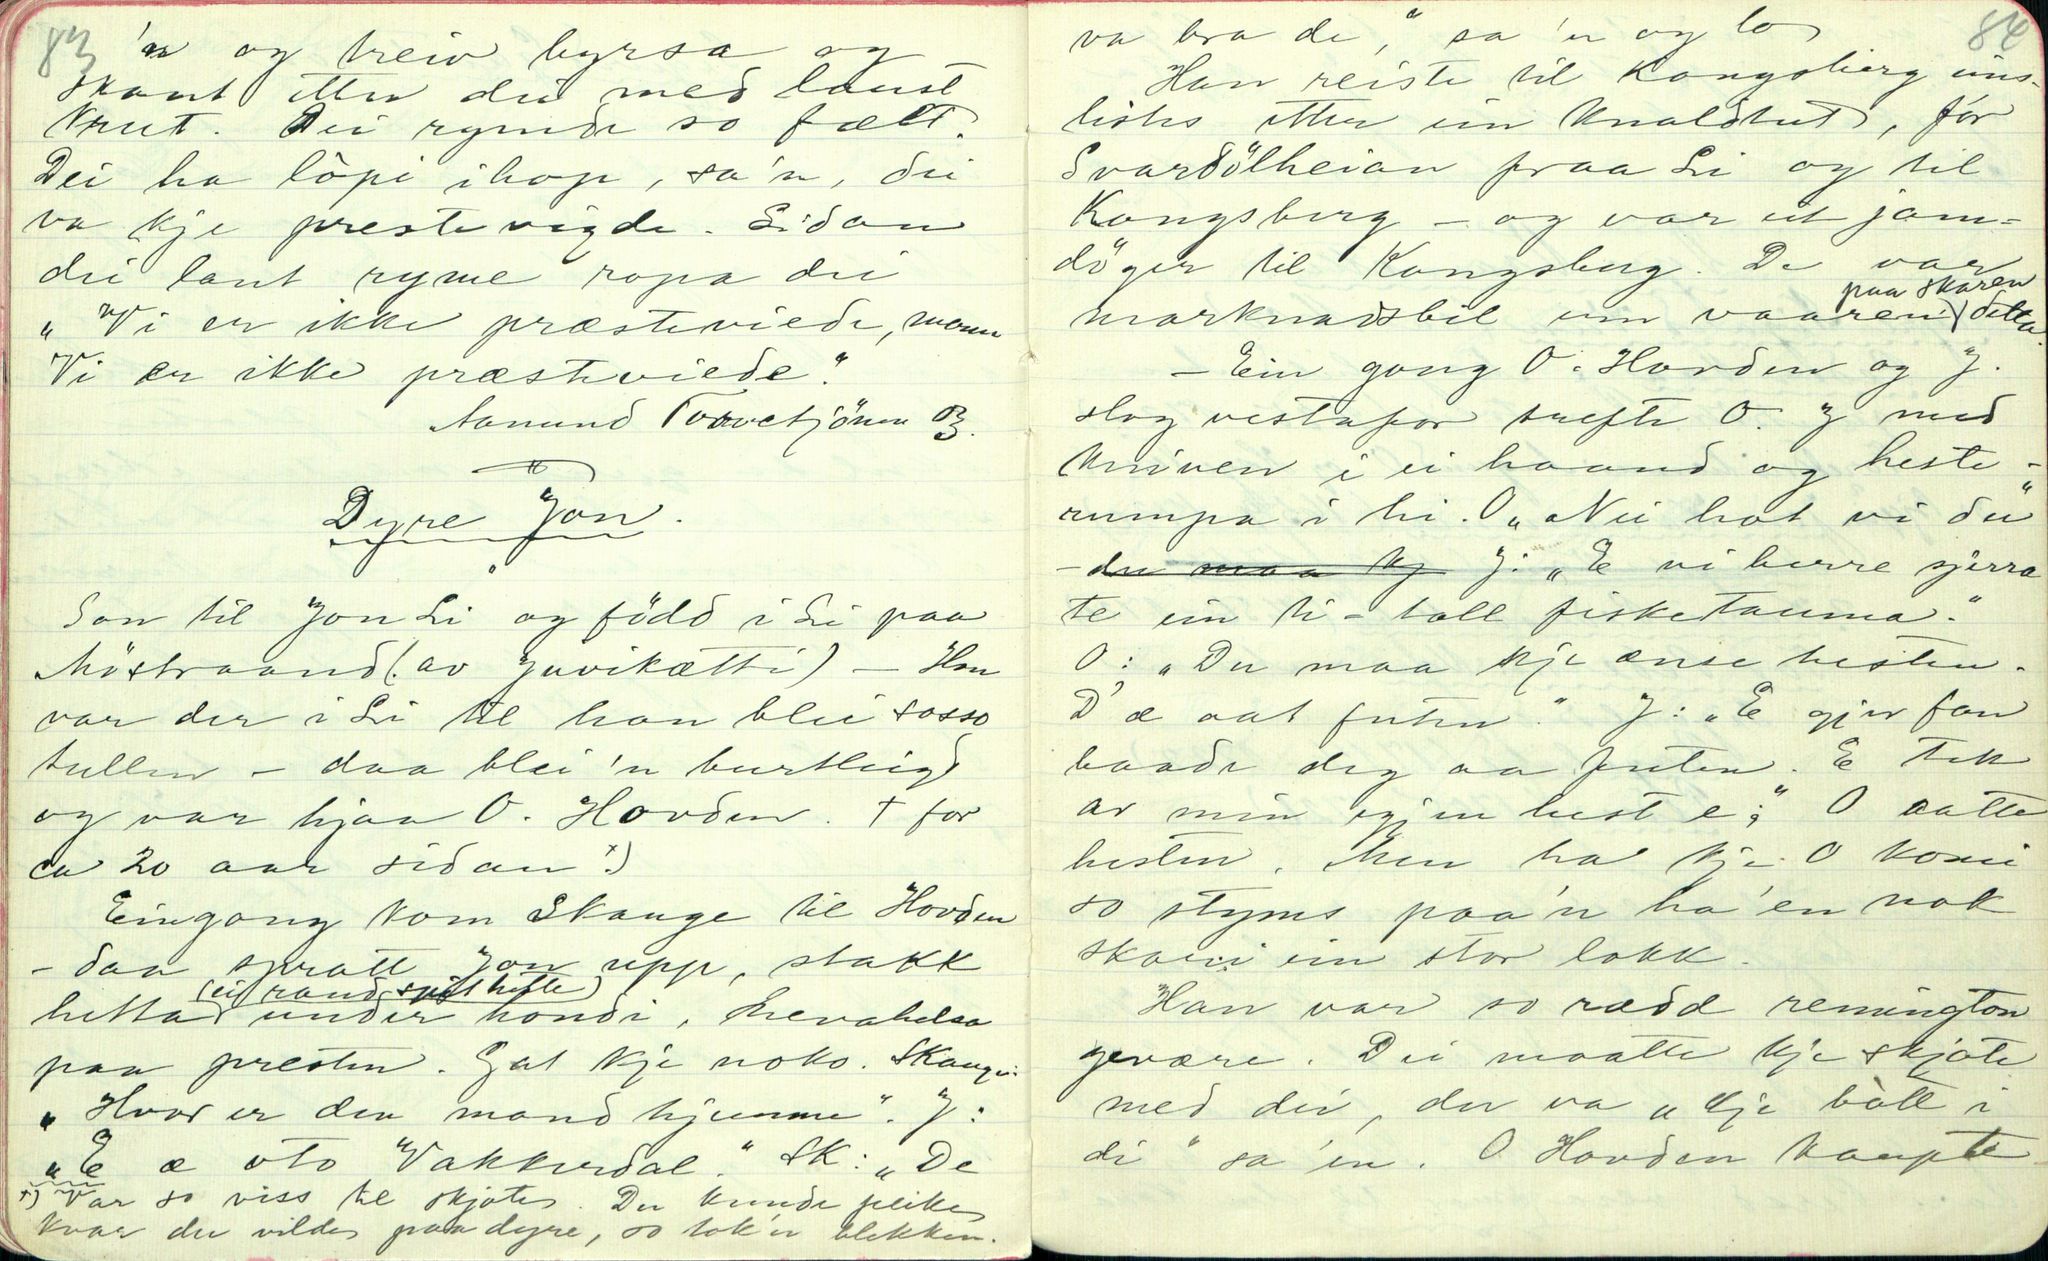 83
'n og treiv byrsa og
skaut etter dei med laust
krut. Dei rymde so fælt.
Dei ha löpi ihop, sa'n, dei
va kje prestevigde. Sidan
dei laut ryme ropa dei
"Vi er ikke præsteviede, mann
Vi er ikke præsteviede".
Aanund Torvetjönn B.
Dyre Jon.
Son til Jon Li og född i Li paa
Möstraand (av Juvikætti) - Han
var der i Li til han blei sosso
tullen - daa blei 'n burtleigd
og var hjaa O. Hovden. † for
ca 20 aar sidan x)
Eingong kom Skauge til Hovden
- daa spratt Jon upp, stakk
(ei raud hette)
hetta under hondi, 
paa presten. Gat kje noko. Skauge:
"Hvor er den mand hjemme". J:
"E æ oto Vakkerdal." SK: "De
x) Var so viss te skjote. Du kunde peike
kvar du vilde paa dyre, so tok'n blekken.
84
va bra de," sa 'n og lo
Han reiste til Kongsberg eins-
ligs etter ein knaldhut, for
Svardölheian fraa Li og til
Kongsberg - og var eit jam-
döger til Kongsberg. De var
paa skaren
marknadsbil um vaaren detta.
- Ein gong O. Hovden og J.
slog vestafor trefte O. J med
kniven i ei haand og heste-
rumpa i hi. O "Nei hot vi du"
- du maa kj J: "E vi berre sjerra
te ein ti-toll fisketauma."
O: "Du maa kje ænse hesten.
D'æ aat futen." J: "E gjev fan
baade deg aa futen. E tek
av min eigjen hest e;" O aatte
hesten. Men ha kje O komi
so styms paa'n ha'en nok
skori ein stor lokk.
Han var so rædd remington
gevære. Dei maatte kje skjote
med dei, der va "kje bòtt i
di" sa'en. O Hovden kaupte